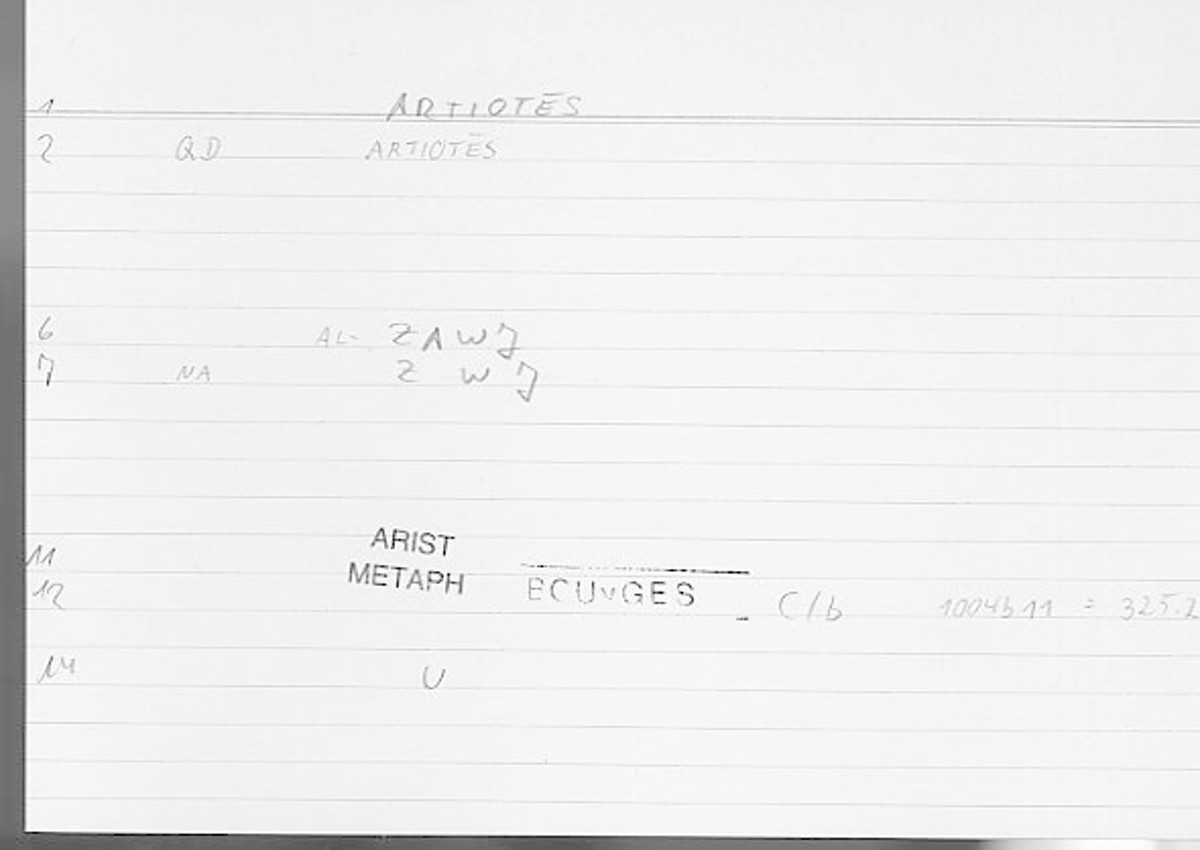 1 ARTIOTĒS
2 QD ARTIOTĒS
6 AL- ZAWJ
7 NA Z WJ
11 ARIST
12 METAPH ECUVGES C/b 1004b11 = 325.2
14 U